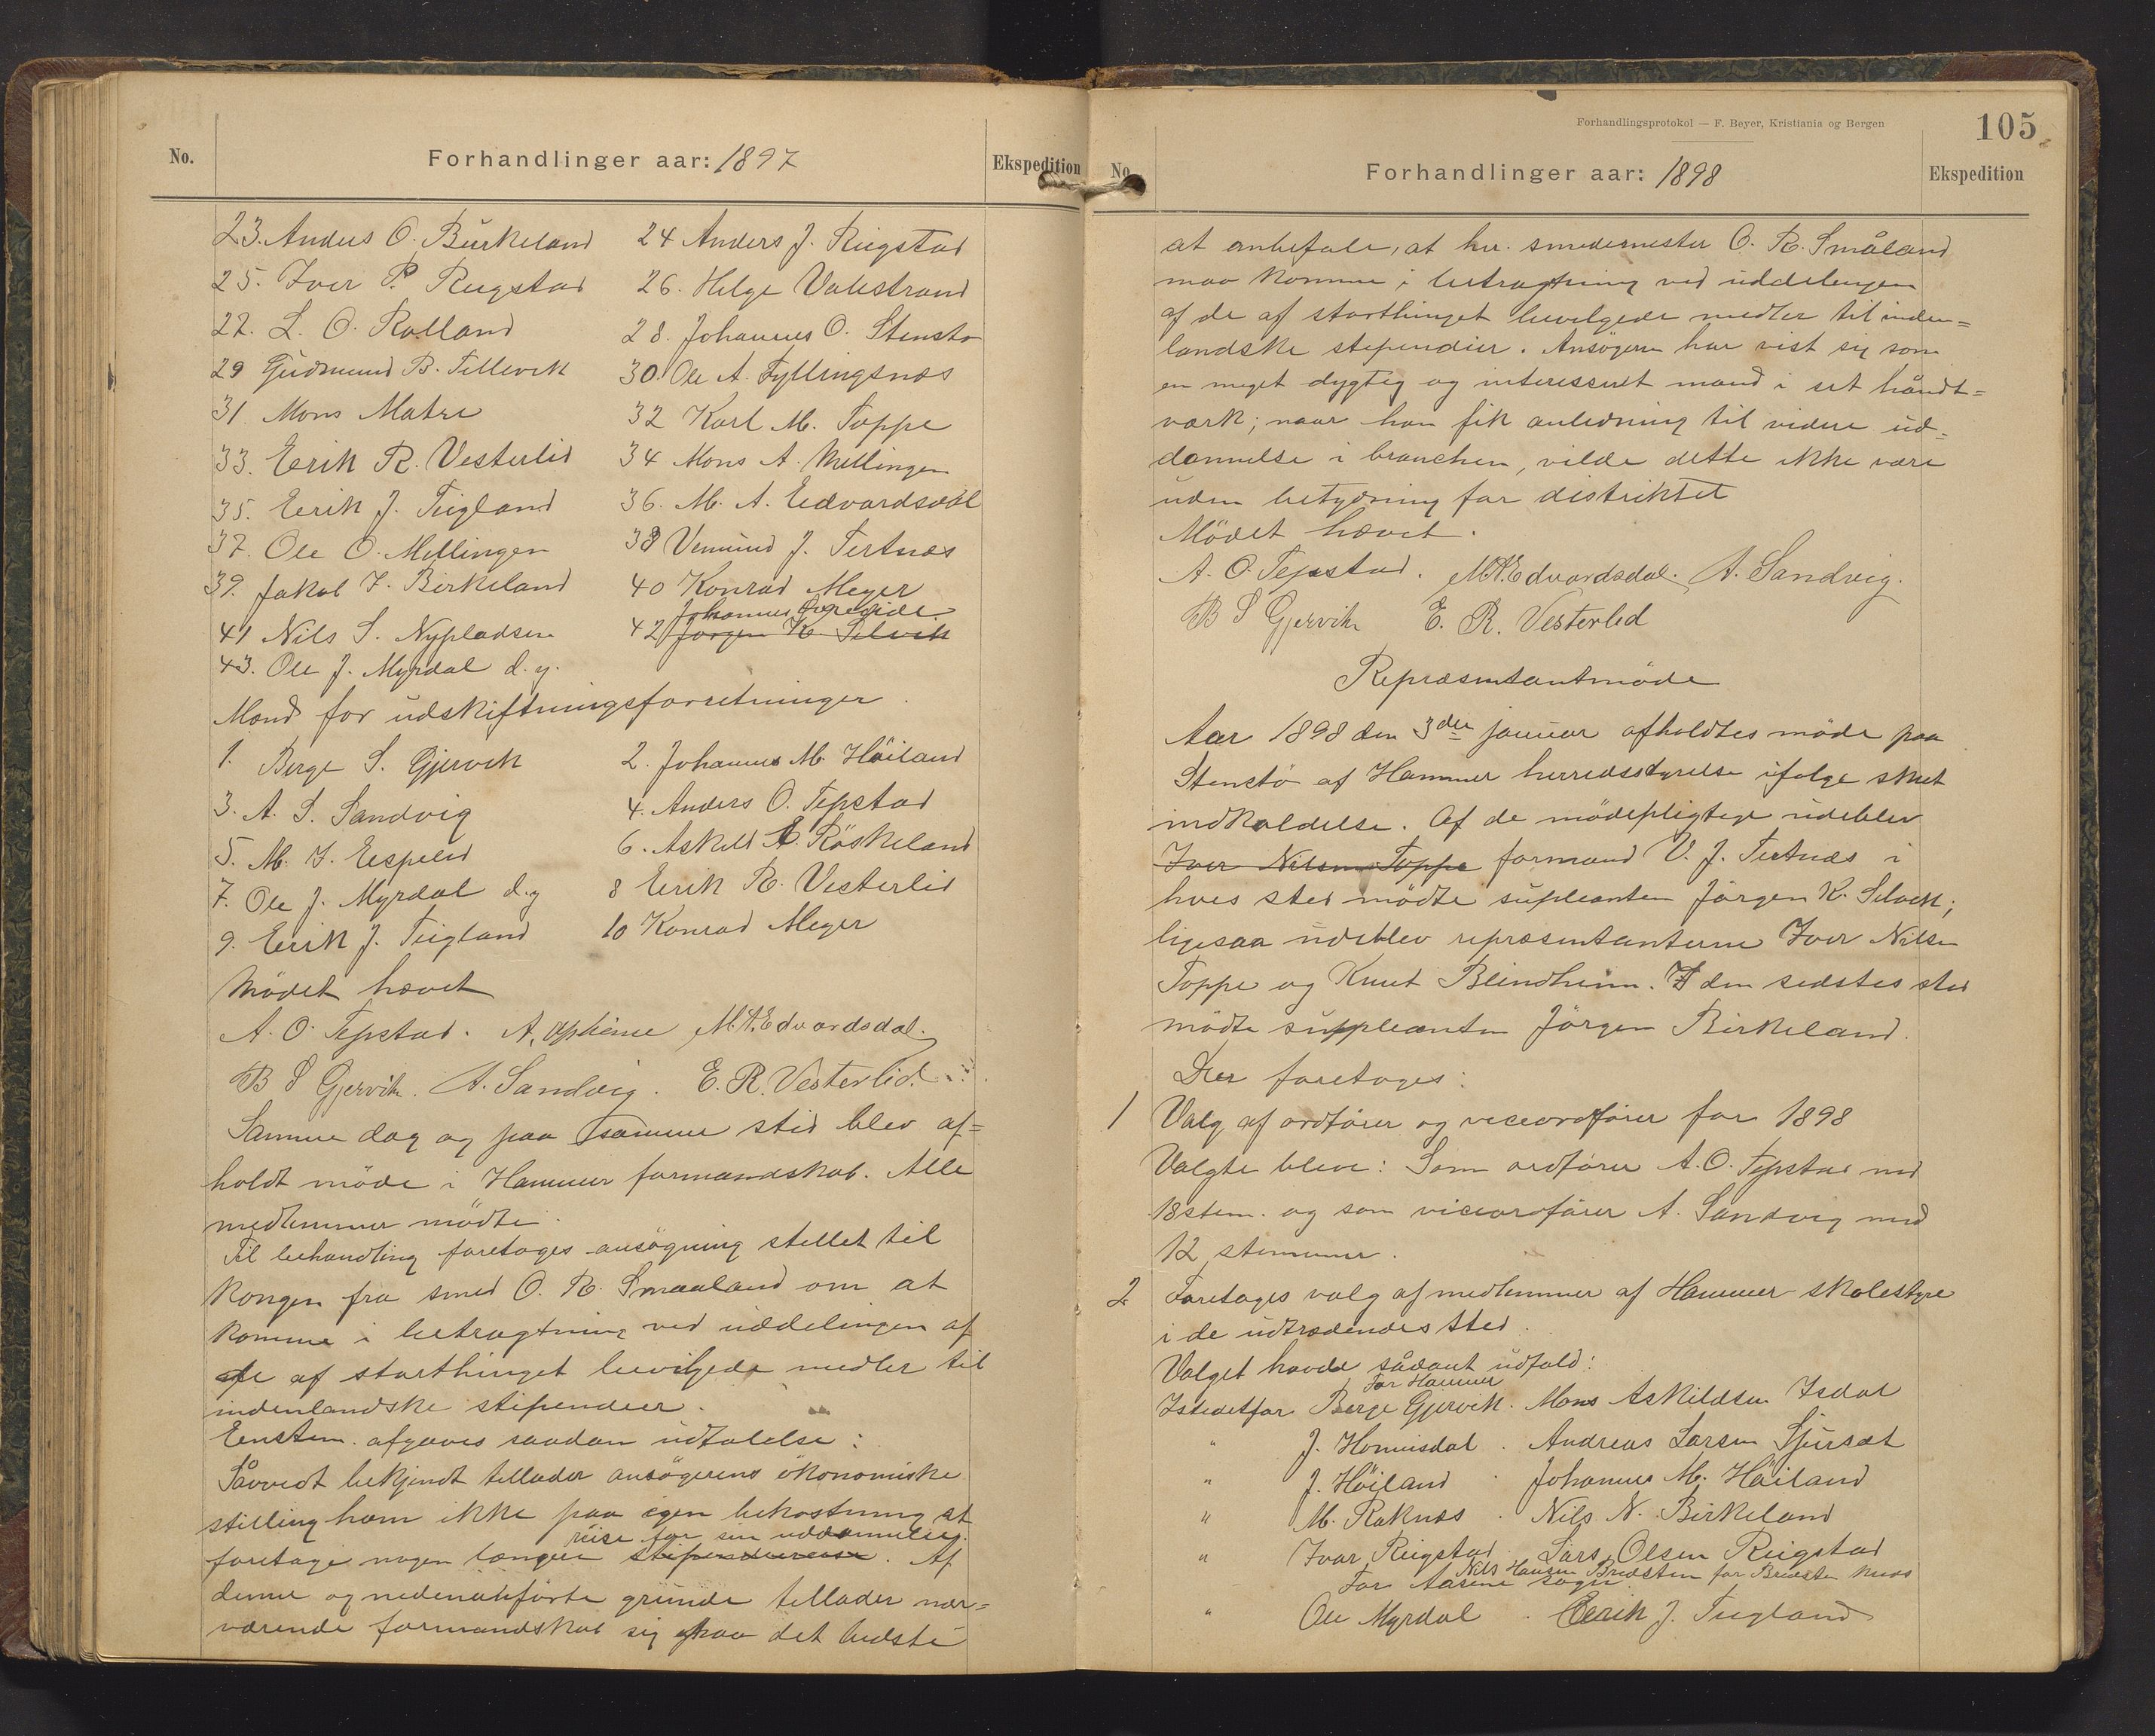 No.
Forhandlinger aar: 1897
Ekspedition
23. Anders O. Birkeland 24 Anders J. Rigstad
25. Iver P. Rigstad 26. Helge Valestrand
27. L. O. Rolland 28. Johannes O. Stenstø
29 Gudmund B. Tellevik 30. Ole A. Fyllingsnæs
31 Mons Matre 32 Karl M. Toppe
33. Eerik R. Vesterlid 34 Mons A. Mellingen
35. Eerik J. Teigland 36. M. A. Eedvardsdal
37. Ole O. Mellingen 38 Vemund J. Tertnæs
39. Jakob J. Birkeland 40 Konrad Meyer
Johannes
41 Nils S. Nypladsen 42 Jørgen K. Selvik
43. Ole J. Myrdal d.y.
Mænd for udskiftningsforretninger
1. Berge S. Gjervik 2. Johannes M. Höiland
3. A. S. Sandvig 4. Anders O. Tepstad
5. M. J. Eespelid 6. Askild A. Röskeland
7. Ole J. Myrdal d.y 8 Eerik R. Vesterlid
9. Eerik J. Teigland 10 Konrad Meyer
Mödet hævet
A. O. Tepstad. A. M. A. Edvardsdal.
B S Gjervik. A. Sandvig. E. R. Vesterlid.
Samme dag og paa samme sted blev af=
holdt möde i Hammer formandskab. Alle
medlemmer mödte.
Til behandling foretoges ansögning stillet til
Kongen fra smed O. R. Smaaland om at
komme i betragtning ved uddelingen af
de af storthinget bevilgede midler til
indenlandske stipendier.
Eenstem. afgaves saadan udtalelse:
Såvidt bekjendt tillader ansögerens ökonomiske
stilling ham ikke paa egen bekostning at
reise for sin uddannelse.
foretage nogen længere stipendiereise. Af
denne og nedenanförte grunde tillader nær=
værende formandskab sig paa det bedste
Forhandlingsprotokol — F. Beyer, Kristiania og Bergen
105
No.
Forhandlinger aar: 1898
Ekspedition
at anbefale, at hr. smedemester O. R. Småland
maa komme i betragtning ved uddelingen
af de af storthinget bevilgede midler til inden=
landske stipendier. Ansögeren har vist sig som
en meget dygtig og interesseret mand i sit håndt=
værk; naar han fik anledning til videre ud=
dannelse i branchen, vilde dette ikke være
uden betydning for distriktet
Mödet hævet.
A. O. Tepstad. M. A. Edvardsdal. A. Sandvig.
B S Gjervik E. R. Vesterlid
Repræsentantmöde
Aar 1898 den 3die januar afholdtes möde paa
Stenstö af Hammer herredsstyrelse ifølge skeet
indkaldelse. Af de mödepligtige udeblev
Iver Nilsen Toppe formand V. J. Tertnæs i
hvis sted mödte supleanten Jörgen K. Selvik;
ligesaa udeblev repræsentanterne Iver Nilsen
Toppe og Knut Blindheim. I den sidstes sted
mödte suppleanten Jörgen Birkeland.
Der foretoges:
1 Valg af ordförer og viceordförer for 1898
Valgte bleve: Som ordförer A. O. Tepstad med
18 stem. og som viceordförer A. Sandvig med
12 stemmer.
2 Foretoges valg af medlemmer af Hammer skolestyre
i de udtrædendes sted.
Valget havde sådant udfald:
For Hammer
Istedetfor Berge Gjervik. Mons Askildsen Isdal
" J. Homisdal. Andreas Larsen Sjursæt
" J. Höiland. Johannes M. Höiland
" M. Raknæs. Nils N. Birkeland
" Ivar Reigstad Lars Olsen Reigstad
Nils Hansen Bredsten for Bredsten kreds
For Aasene sogn
" Ole Myrdal. Eerik J. Teigland